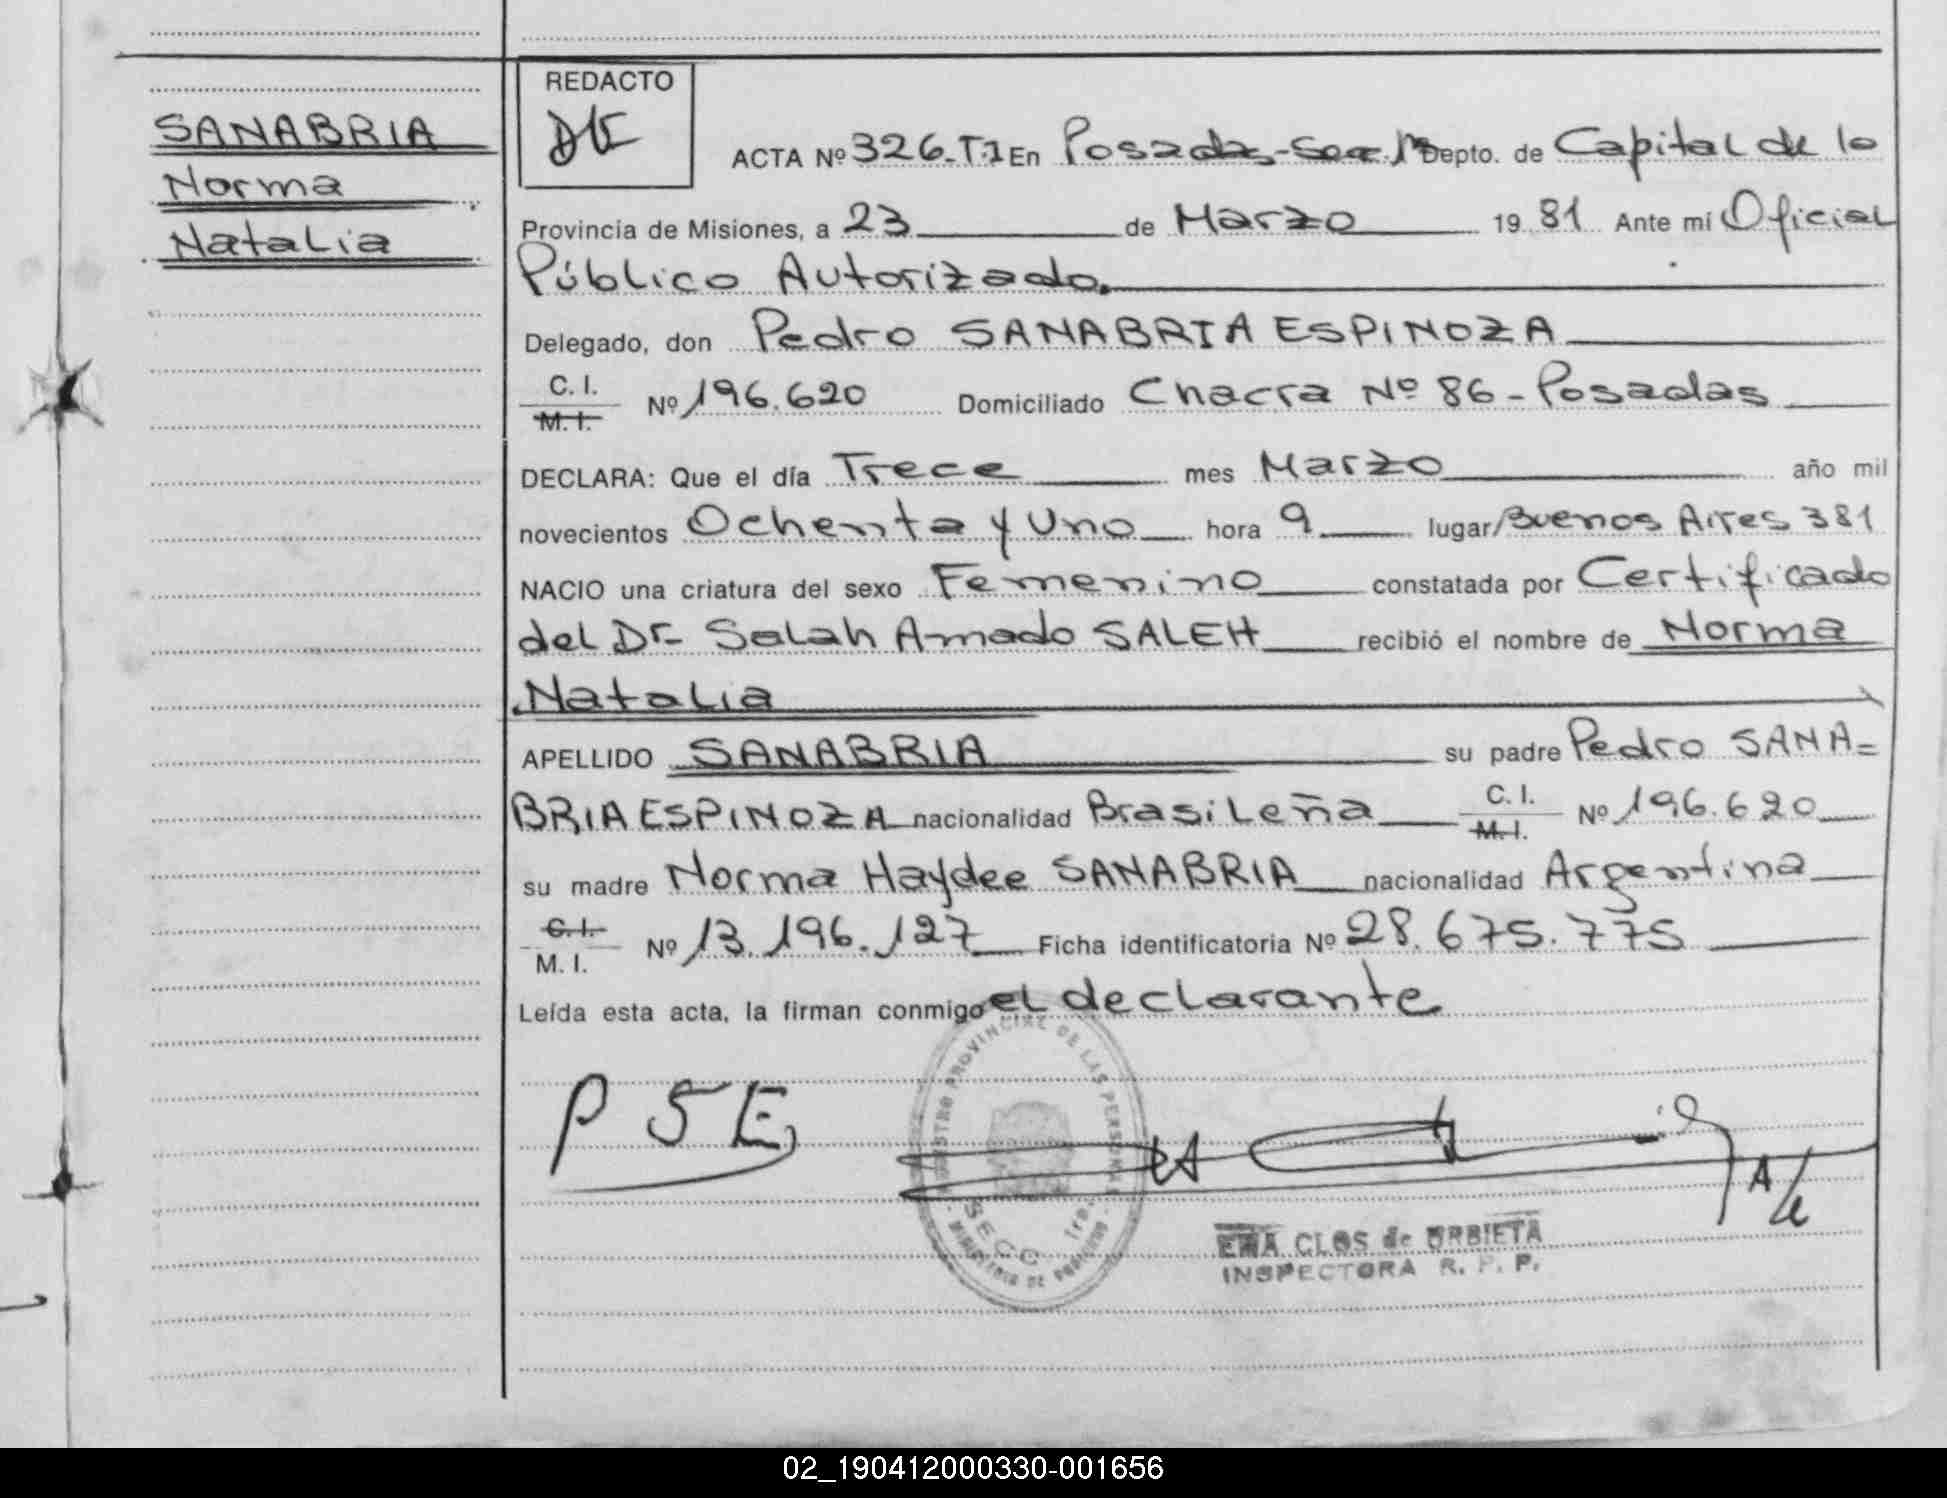 SANABRIA
Norma
Natalia
REDACTO
ACTA Nº 326-T.1 En Posadas-Sec. 1ª Depto. de Capital de la
Provincia de Misiones, a 23 de Marzo 19 81 Ante mí Oficial
Público Autorizado.
Delegado, don Pedro SANABRIA ESPINOZA
C. I.
M. I. Nº 196.620 Domiciliado Chacra Nº 86 - Posadas
DECLARA: Que el día Trece mes Marzo año mil
novecientos Ochenta y Uno hora 9 lugar/Buenos Aires 381
NACIO una criatura del sexo Femenino constatada por Certificado
del Dr. Salah Amado SALEH recibió el nombre de Norma
Natalia
APELLIDO SANABRIA su padre Pedro SANA=
BRIA ESPINOZA nacionalidad Brasileña C. I.
M. I. Nº 196.620
su madre Norma Haydee SANABRIA nacionalidad Argentina
C. I.
M. I. Nº 13.196.127 Ficha identificatoria Nº 28.675.775
Leída esta acta, la firman conmigo el declarante
P S E
REGISTRO PROVINCIAL DE LAS PERSONAS
SECC. 1ra.
MINISTERIO DE GOBIERNO
EMA CLOS de URBIETA
INSPECTORA R. P. P.
02_190412000330-001656